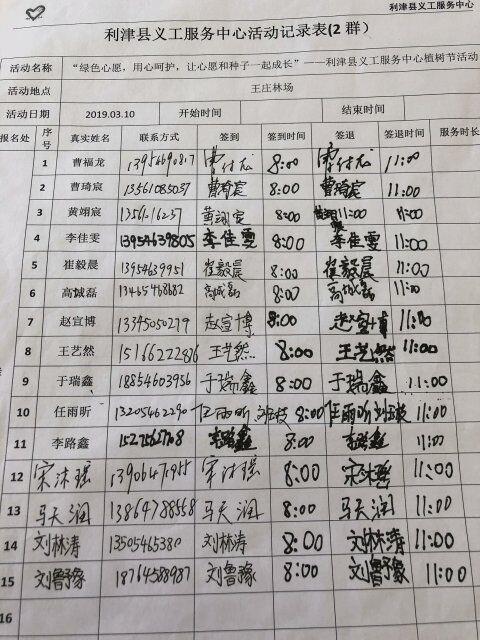 利津县义工服务中心
利津县义工服务中心活动记录表(2 群)
活动名称 “绿色心愿，用心呵护，让心愿和种子一起成长”——利津县义工服务中心植树节活动
活动地点 王庄林场
活动日期 2019.03.10 开始时间 结束时间
报名处 序号 真实姓名 联系方式 签到 签到时间 签退 签退时间 服务时长
1 曹福龙 8:00 11:00
2 曹琦宸 13561083037 曹琦宸 8:00 曹琦宸 11:00
3 黄翊宸 黄翊宸 8:00 11:00 11:00
4 李佳雯 13954639805 李佳雯 8:00 李佳雯 11:00
5 崔毅晨 13954639951 崔毅晨 8:00 崔毅晨 11:00
6 高诚磊 13465468682 高诚磊 8:00 高诚磊 11:00
7 赵宣博 13345050279 赵宣博 8:00 赵宣博 11:00
8 王艺然 王艺然 8:00 王艺然 11:00
9 于瑞鑫 18854603956 于瑞鑫 8:00 于瑞鑫 11:00
10 任雨昕 13205462290 任雨昕 8:00 任雨昕 11:00
11 李路鑫 李路鑫 8:00 李路鑫 11:00
12 宋沐瑶 宋沐瑶 8:00 宋沐瑶 11:00
13 马天润 13864788558 马天润 8:00 马天润 11:00
14 刘林涛 13505465380 刘林涛 8:00 刘林涛 11:00
15 刘鲁豫 18764588987 刘鲁豫 8:00 刘鲁豫 11:00
16